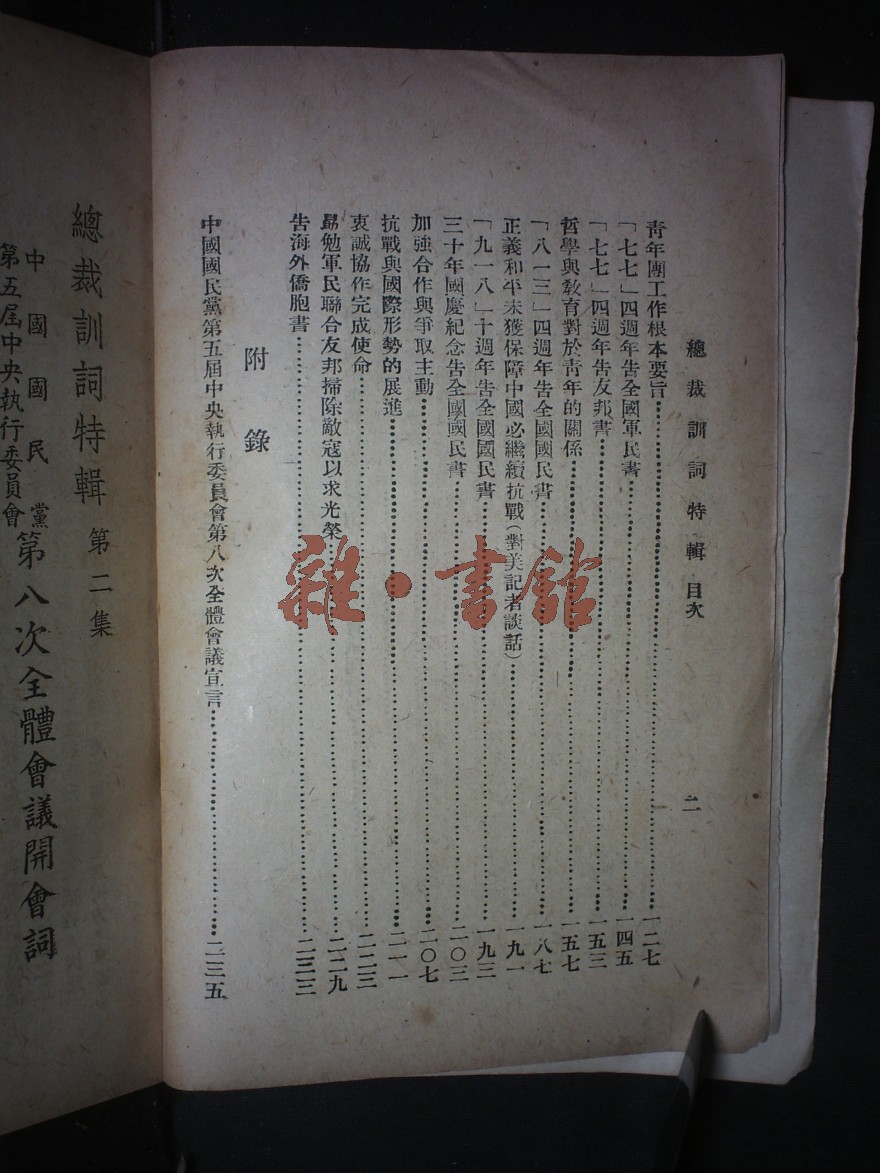 總裁訓詞特輯 目次
二
青年團工作根本要旨……一二七
「七七」四週年告全國軍民書……一四五
「七七」四週年告友邦書……一五三
哲學與敎育對於靑年的關係……一五七
「八一三」四週年告全國國民書……一八七
正義和平未獲保障中國必繼續抗戰(對美記者談話)……一九一
「九一八」十週年告全國國民書……一九三
三十年國慶紀念告全國國民書……二〇三
加强合作與爭取主動……二〇七
抗戰與國際形勢的展進……二一一
衷誠協作完成使命……二二三
勗勉軍民聯合友邦掃除敵寇以求光榮……二二九
告海外僑胞書……二三三
附錄
中國國民黨第五屆中央執行委員會第八次全體會議宣言……二三五
總裁訓詞特輯 第二集
中國國民黨
第五屆中央執行委員會
第八次全體會議開會詞
雜·書館